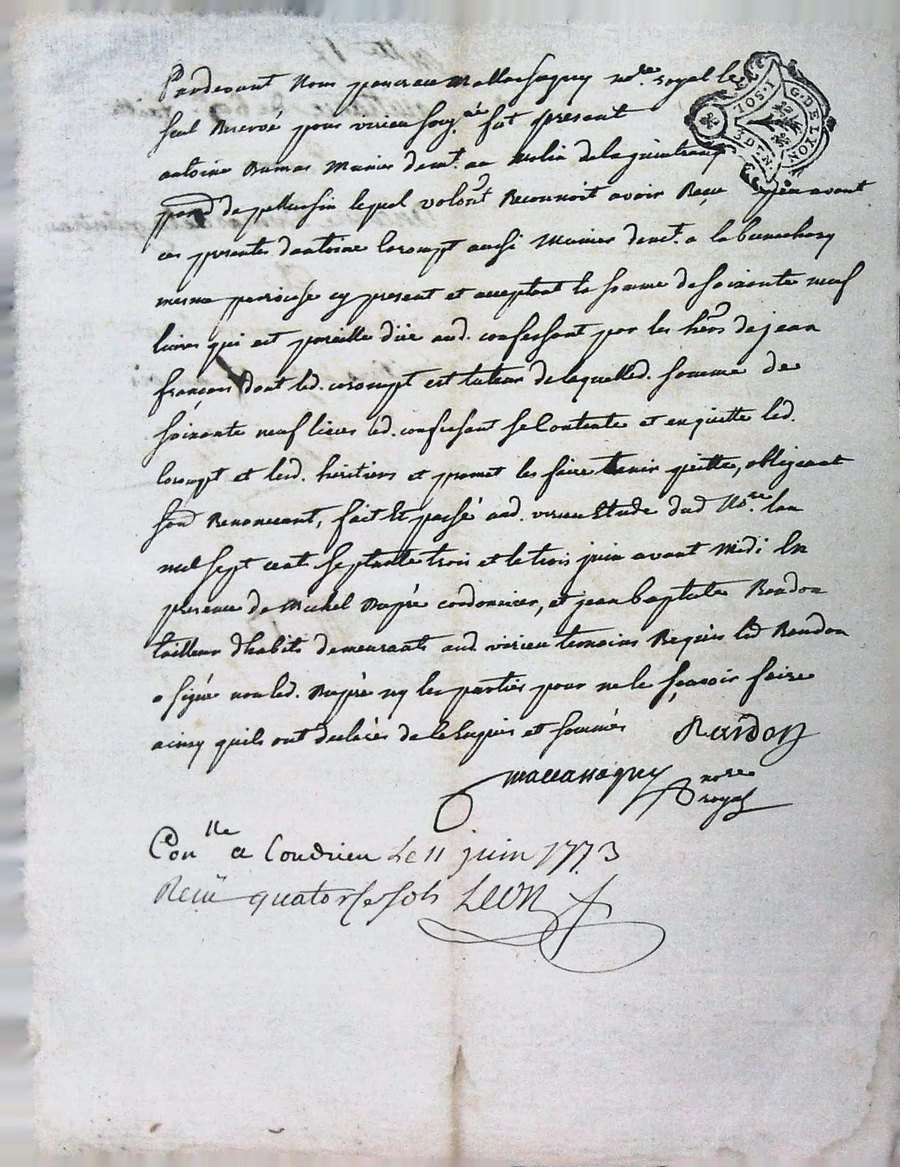 Pardevant Nous pancrace Mallassagny no.re royal le
seul Reservé pour virieu soug.né fut present
antoine Dumas Munier demt. au Molin de la
par. de pellussin lequel volont Reconnoit avoir Reçu avant
ces presentes dantoine Corompt aussi Munier demt. a la
mesme parroisse cy present et acceptant la somme de soixante neuf
livres qui est pareille düe aud. confessant par les hérs de jean
françois dont led. corompt est tuteur de laquelled. somme de
soixante neuf livres led. confessant se Contente et en quitte led.
Corompt et lesd. héritiers et promet les faire tenir quitte, obligeant
sond Renonceant, fait Et passé aud. virieu Etude dud No.re lan
mil sept cent septante trois et le trois juin avant Midi En
presence de Michel Dupré cordonnier, et jean baptiste Rendon
tailleur dhabits demeurants aud. virieu temoins Requis led Rendon
a signé non led. Dupré ny les parties pour ne le sçavoir faire
ainsy quils ont declarés de ce Enquis et sommés Randon
mallassagny no.re
royal
Con.lle a Condrieu Le 11 juin 1773
Reçu quatorse sols LEON
G. DE LYON
1. SOL